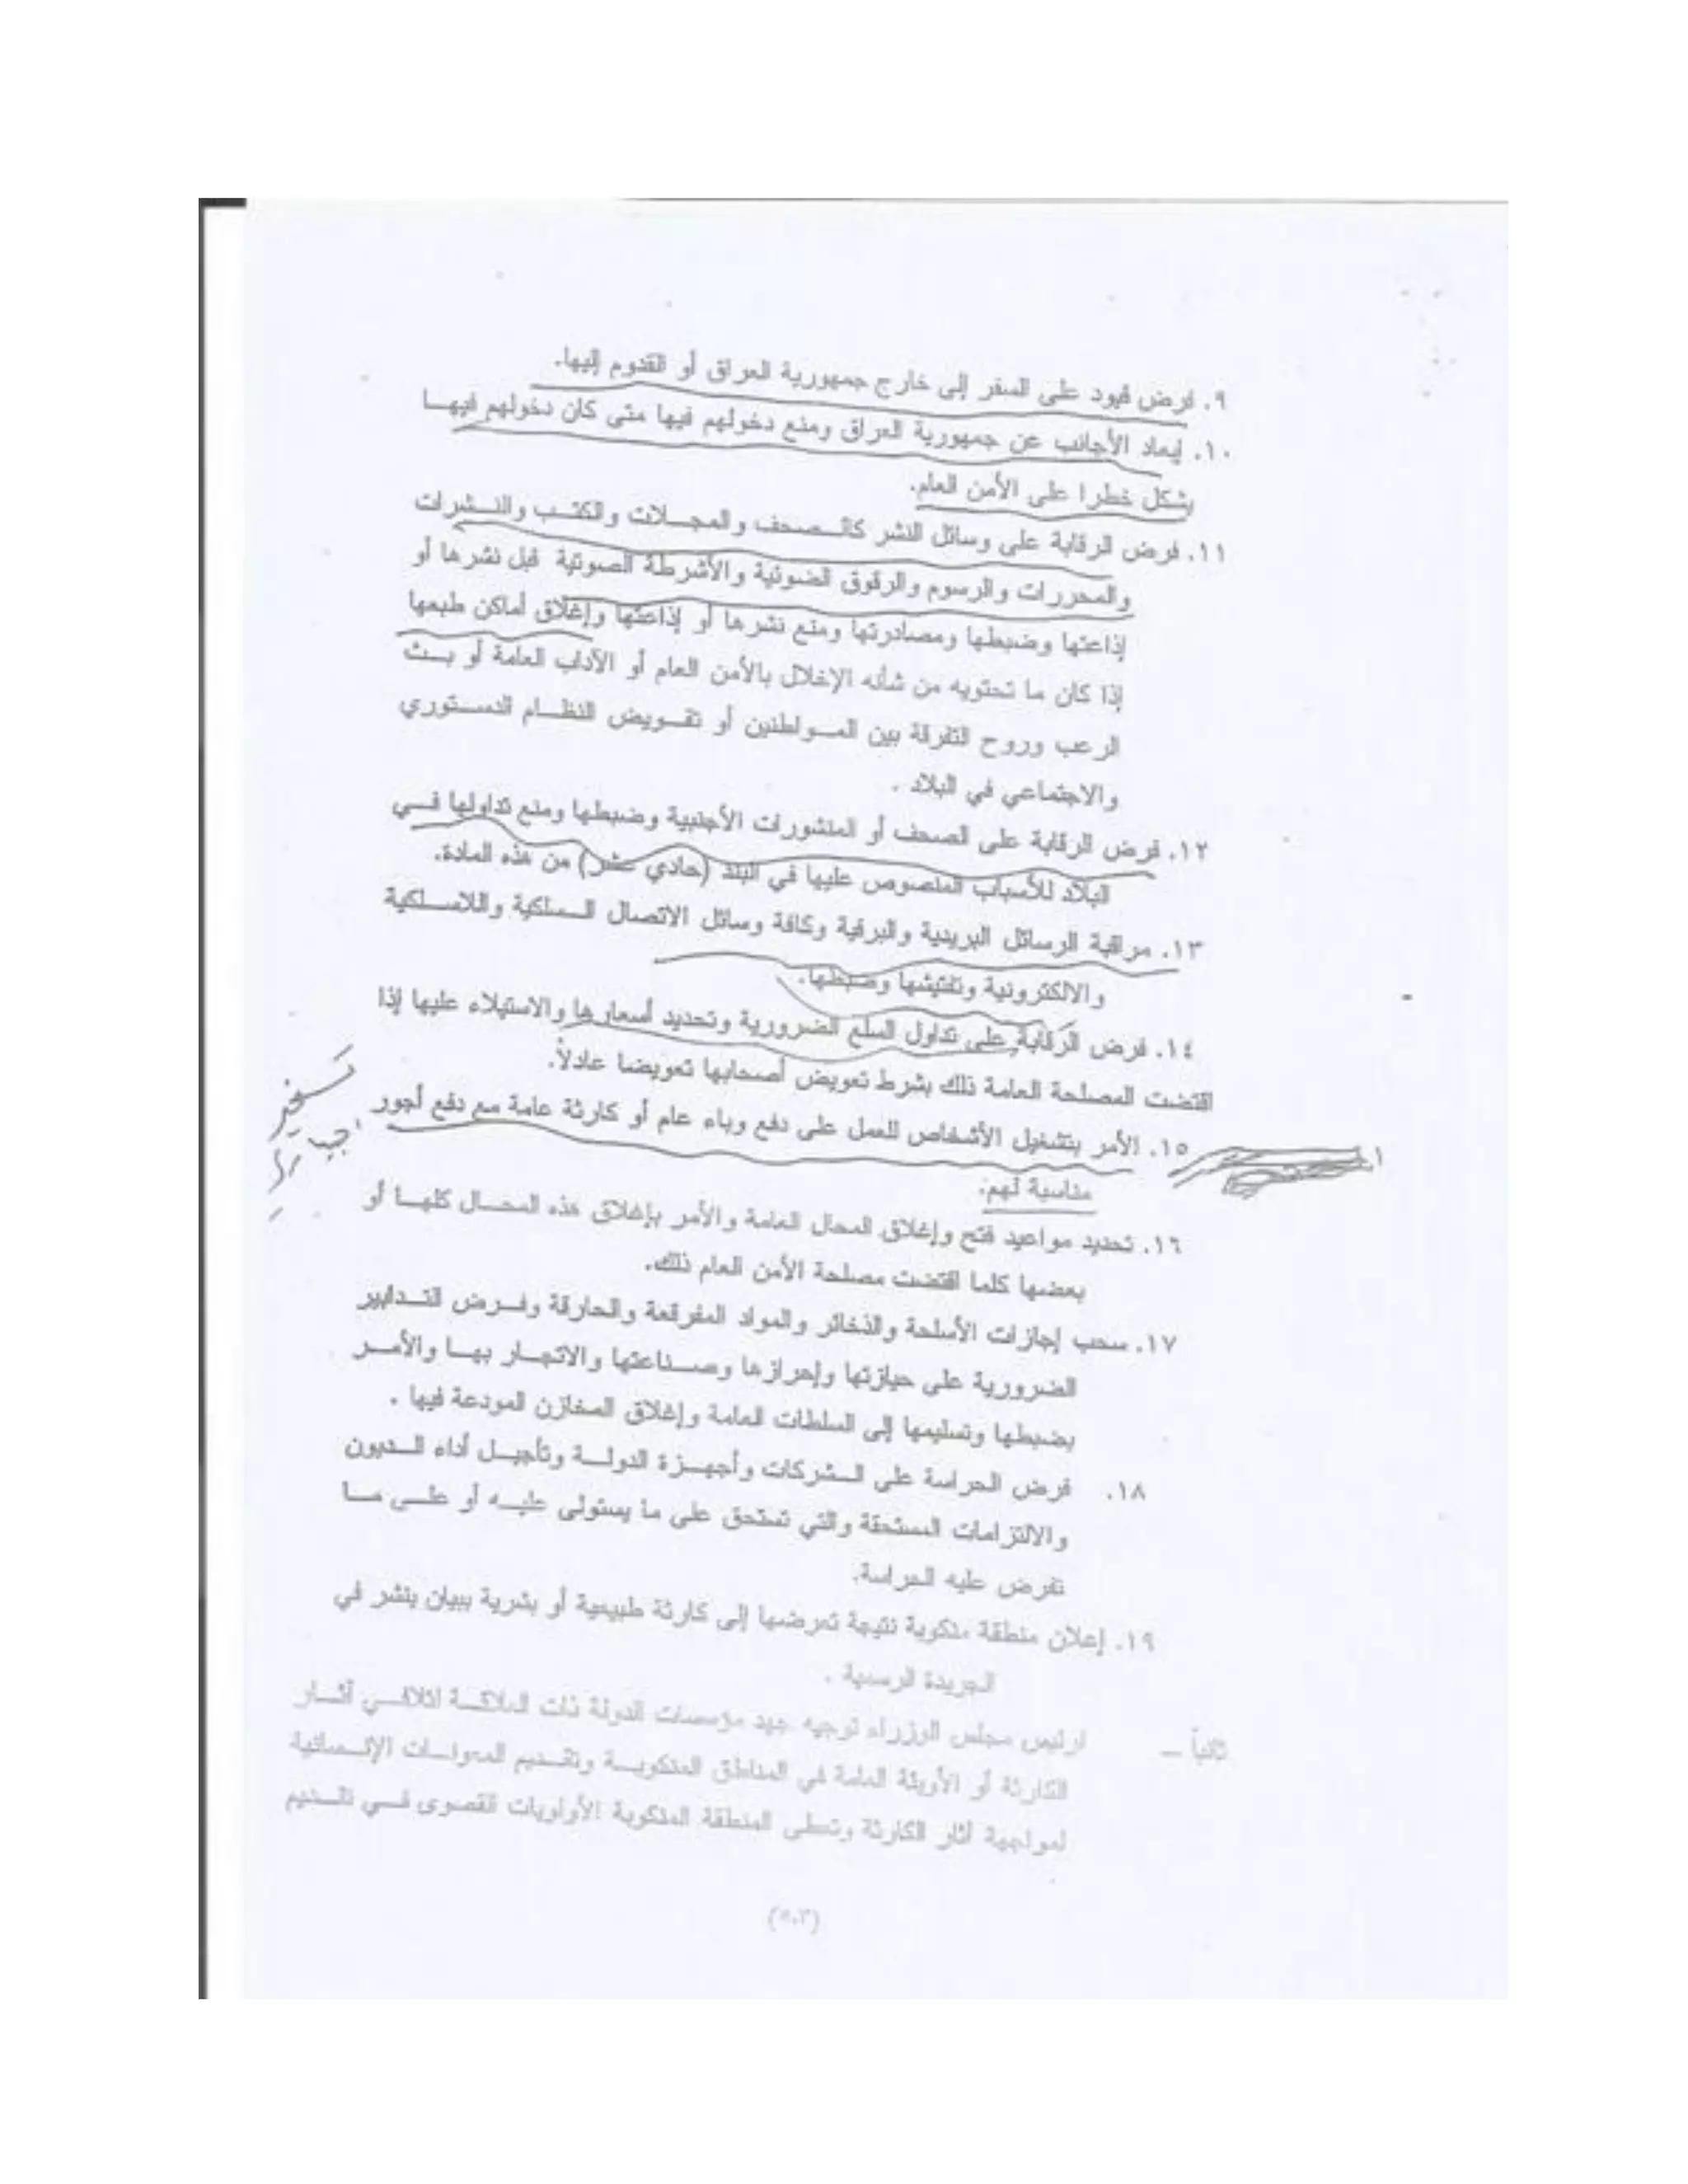 ٩. فرض قيود على السفر إلى خارج جمهورية العراق أو القدوم إليها.
١٠. إبعاد الأجانب عن جمهورية العراق ومنع دخولهم فيها متى كان دخولهم فيها
يشكل خطرا على الأمن العام.
١١. فرض الرقابة على وسائل النشر كالصحف والمجلات والكتب والنشرات
والمحررات والرسوم والرقوق الضوئية والأشرطة الصوتية قبل نشرها أو
إذاعتها وضبطها ومصادرتها ومنع نشرها أو إذاعتها وإغلاق أماكن طبعها
إذا كان ما تحتويه من شأنه الإخلال بالأمن العام أو الآداب العامة أو بث
الرعب وروح التفرقة بين المواطنين أو تقويض النظام الدستوري
والاجتماعي في البلاد .
١٢. فرض الرقابة على الصحف أو المنشورات الأجنبية وضبطها ومنع تداولها في
البلاد للأسباب المنصوص عليها في البند (حادي عشر) من هذه المادة.
١٣. مراقبة الرسائل البريدية والبرقية وكافة وسائل الاتصال السلكية واللاسلكية
والالكترونية وتفتيشها وضبطها.
١٤. فرض الرقابة على تداول السلع الضرورية وتحديد أسعارها والاستيلاء عليها إذا
اقتضت المصلحة العامة ذلك بشرط تعويض أصحابها تعويضا عادلاً.
١٥. الأمر بتشغيل الأشخاص للعمل على دفع وباء عام أو كارثة عامة مع دفع أجور
مناسبة لهم.
١٦. تحديد مواعيد فتح وإغلاق المحال العامة والأمر بإغلاق هذه المحال كلها أو
بعضها كلما اقتضت مصلحة الأمن العام ذلك.
١٧. سحب إجازات الأسلحة والذخائر والمواد المفرقعة والحارقة وفرض التدابير
الضرورية على حيازتها وإحرازها وصناعتها والاتجار بها والأمر
بضبطها وتسليمها إلى السلطات العامة وإغلاق المخازن المودعة فيها .
١٨. فرض الحراسة على الشركات وأجهزة الدولة وتأجيل أداء الديون
والالتزامات المستحقة والتي تستحق على ما يستولى عليه أو على ما
تفرض عليه الحراسة.
١٩. إعلان منطقة منكوبة نتيجة تعرضها إلى كارثة طبيعية أو بشرية ببيان ينشر في
الجريدة الرسمية .
ثانياً – لرئيس مجلس الوزراء توجيه جهد مؤسسات الدولة ذات العلاقة لتلافي أثار
الكارثة أو الأوبئة العامة في المناطق المنكوبة وتقديم المعونات الإنسانية
لمواجهة أثار الكارثة وتعطى المنطقة المنكوبة الأولويات القصوى في تقديم